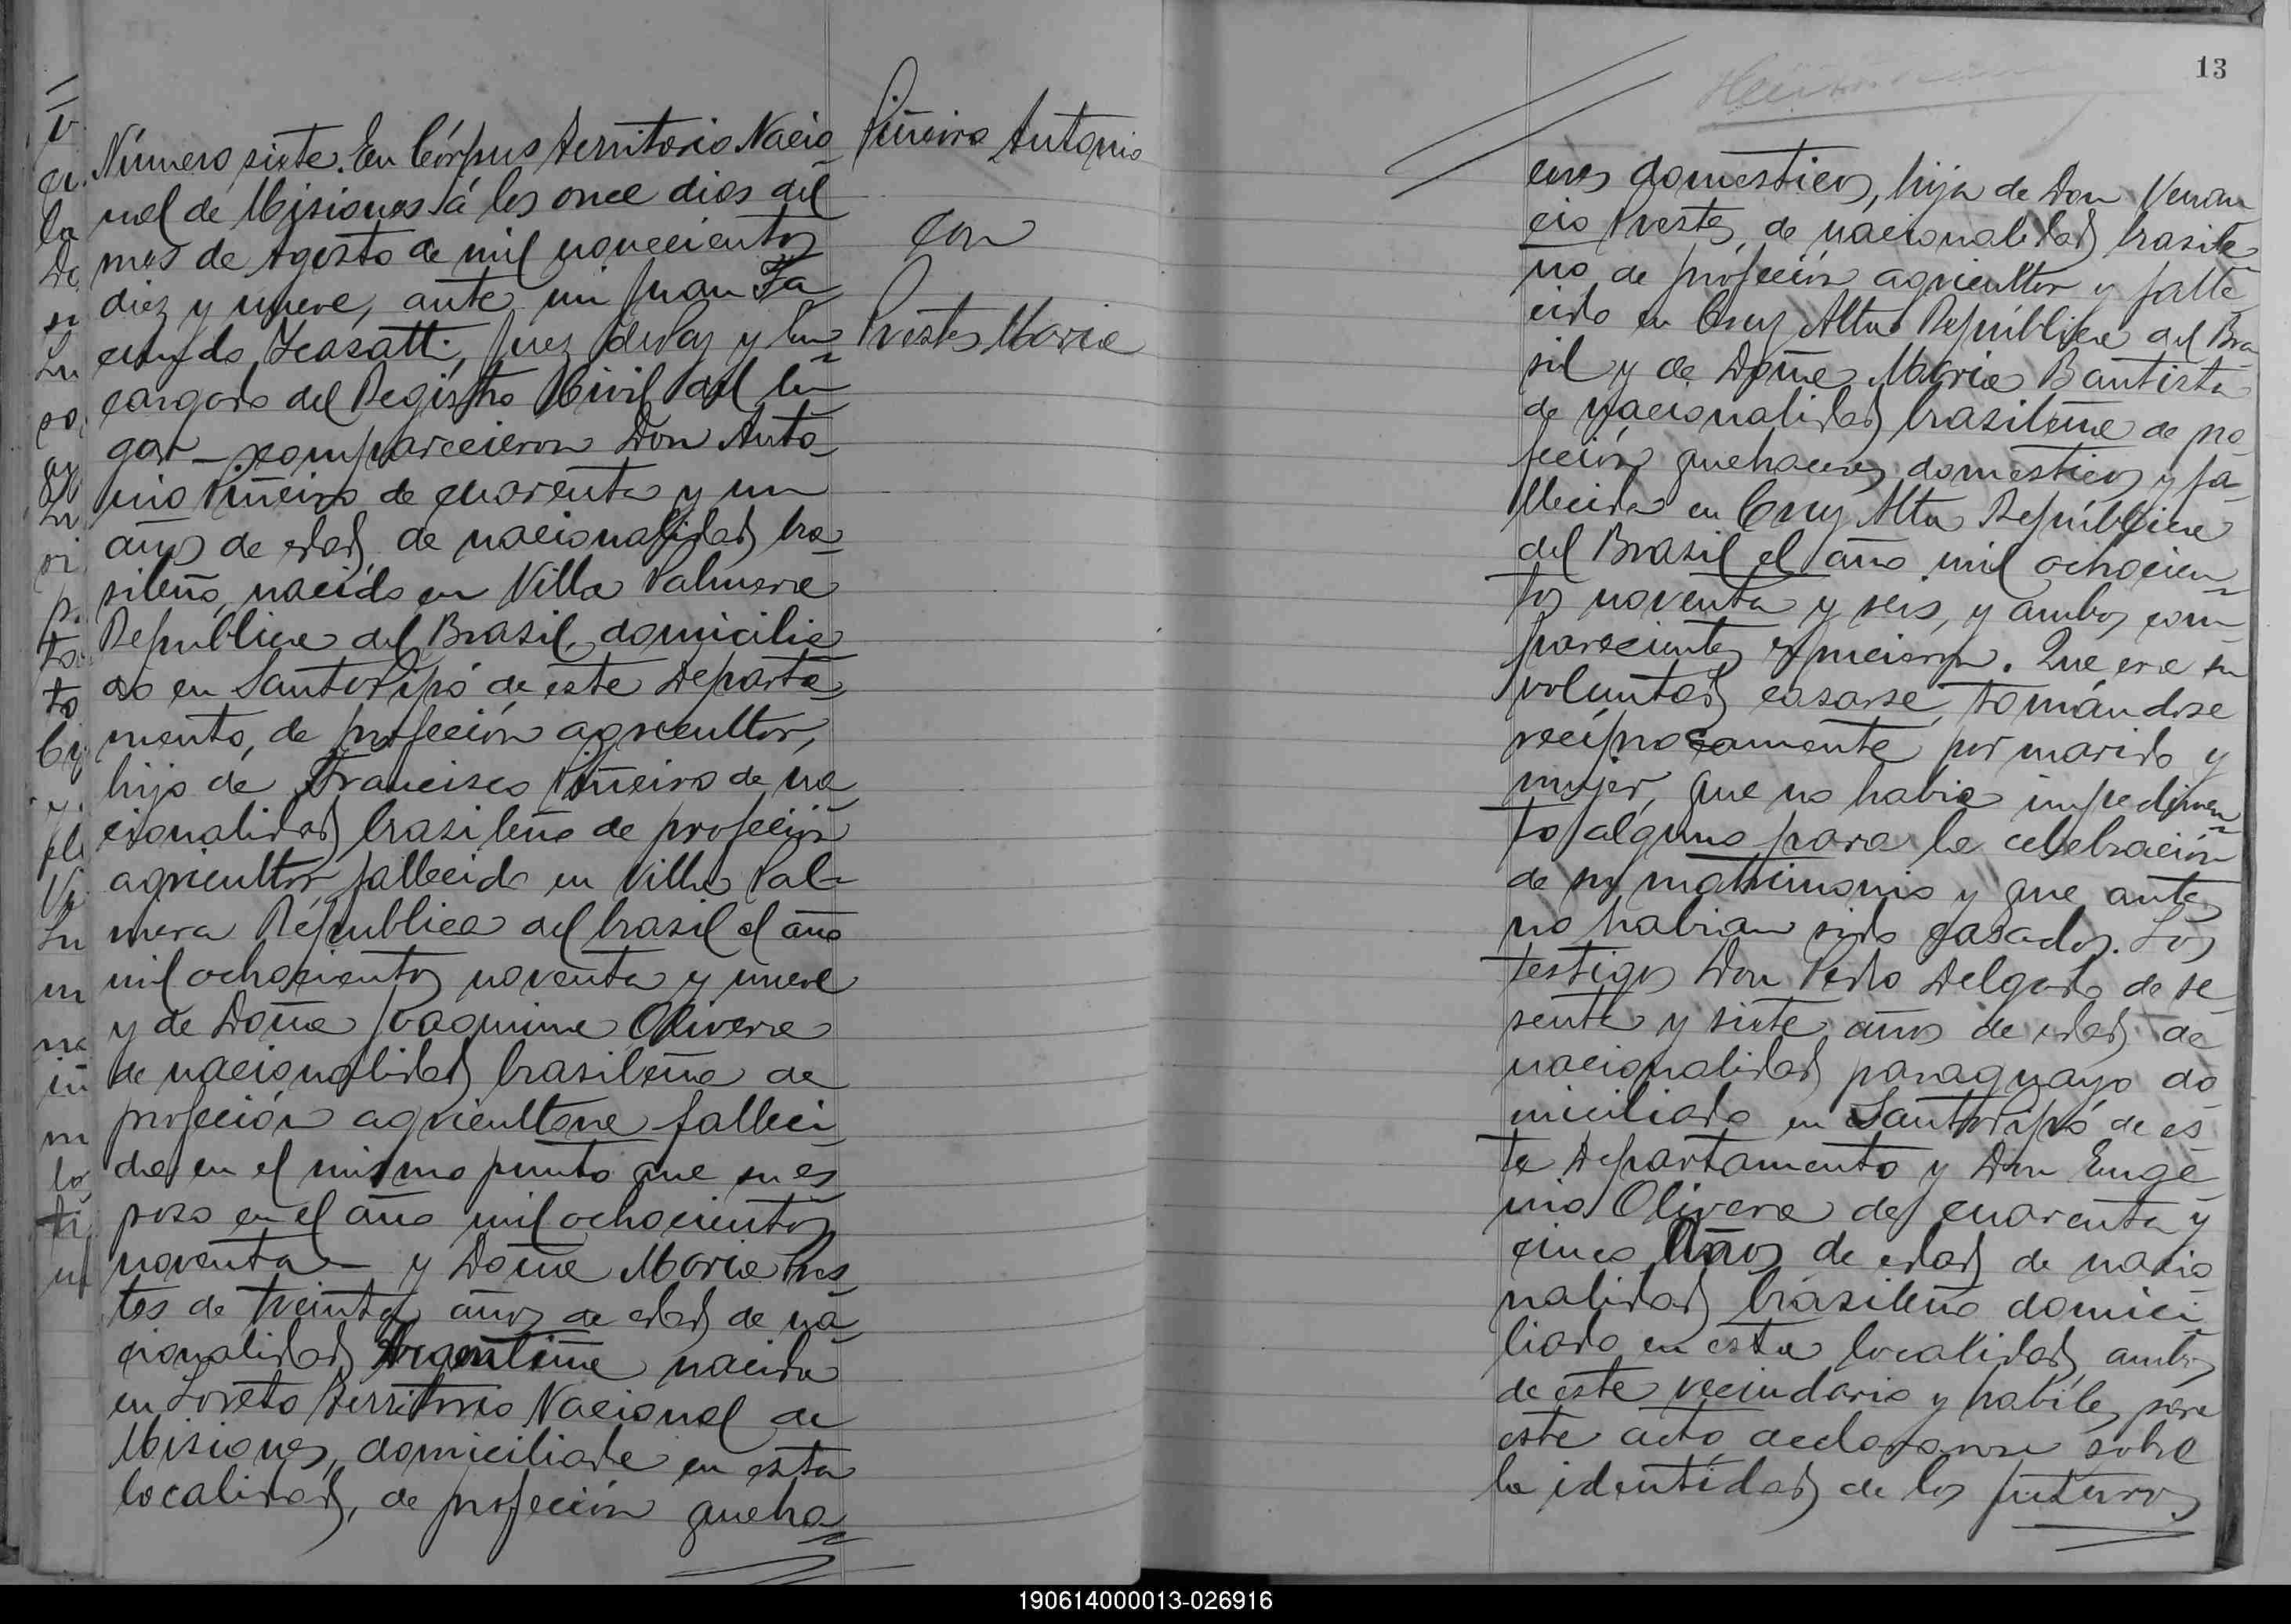 Número siete. En Córpus Territorio Nacio
nal de Misiones á los once dias del
mes de Agosto de mil novecientos
diez y nueve, ante mi Juan Fa
cundo Juez de Paz y En
cargado del Registro Civil del lu
gar comparecieron Don Anto
nio Piñeiro de cuarenta y un
años de edad, de nacionalidad bra
sileño, nacido en Villa Palmera
República del Brasil, domicilia
do en Santo Pipó de este Departa
mento, de profeción agricultor,
hijo de Francisco Piñeiro de na
cionalidad brasileño de profeción
agricultor fallecido en Villa Pal
mera República del brasil el año
mil ochocientos noventa y nueve
y de Doña Joaquina Olivera
de nacionalidad brasileña de
profeción agricultora falleci
da en el mismo punto que su es
poso en el año mil ochocientos
noventa y Doña Maria Pres
tes de treinta años de edad de na
cionalidad Argentina nacida
en Loreto Territorio Nacional de
Misiones, domiciliada en esta
localidad, de profeción queha
Piñeiro Antonio
con
Prestes Maria
13
ceres domesticos, hija de Don Venan
cio Prestes, de nacionalidad brasile
no de profeción agricultor y falle
cido en Cruz Alta República del Bra
sil y de Doña Maria Bautista
de nacionalidad brasileña de pro
feción quehaceres domesticos y fa
llecida en Cruz Alta República
del Brasil el año mil ochocien
tos noventa y seis, y ambos com
parecientes Que era su
voluntad casarse, tomándose
recíprocamente por marido y
mujer, que no habia impedimen
to alguno para la celebración
de su matrimonio y que antes
no habian sido casados. Los
testigos Don Pedro Delgado de se
senta y siete años de edad de
nacionalidad paraguayo do
miciliado en Santo Pipó de es
te Departamento y Don Euge
nio Olivera de cuarenta y
cinco Años de edad de nacio
nalidad brasileño domici
liado en esta localidad, ambos
de este vecindario y habiles para
este acto declararon sobre
la identidad de los futuros
190614000013-026916